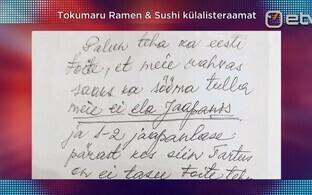 Tokumaru Ramen & Sushi külalisteraamat
etv
Palun teha ka eesti
toite, et meie rahvas
saaks ka sööma tulla
meie ei ela Jaapanis
ja 1-2 jaapanlase
pärast kes siin Tartus
on ei tasu toite teha